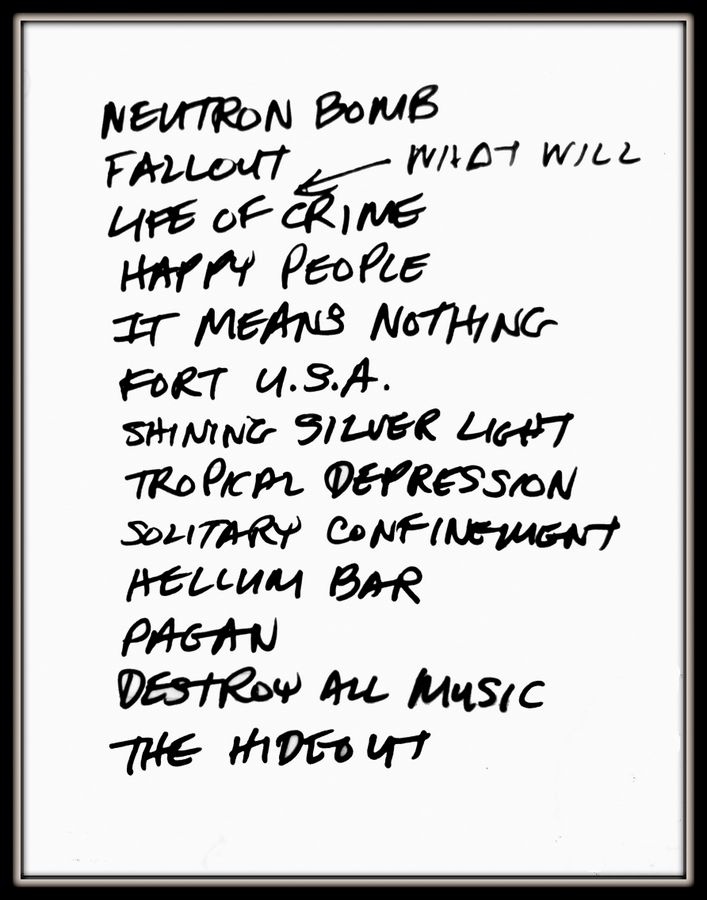 NEUTRON BOMB
FALLOUT
WHAT WILL
LIFE OF CRIME
HAPPY PEOPLE
IT MEANS NOTHING
FORT U.S.A.
SHINING SILVER LIGHT
TROPICAL DEPRESSION
SOLITARY CONFINEMENT
HELLUM BAR
PAGAN
DESTROY ALL MUSIC
THE HIDEOUT